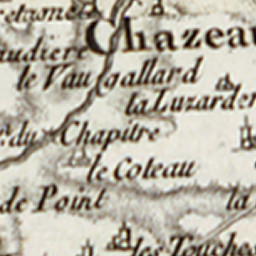 Chazeau
le Vau gallard
la Luzarder
du Chapitre
le Coteau
de Point
la
les Touches